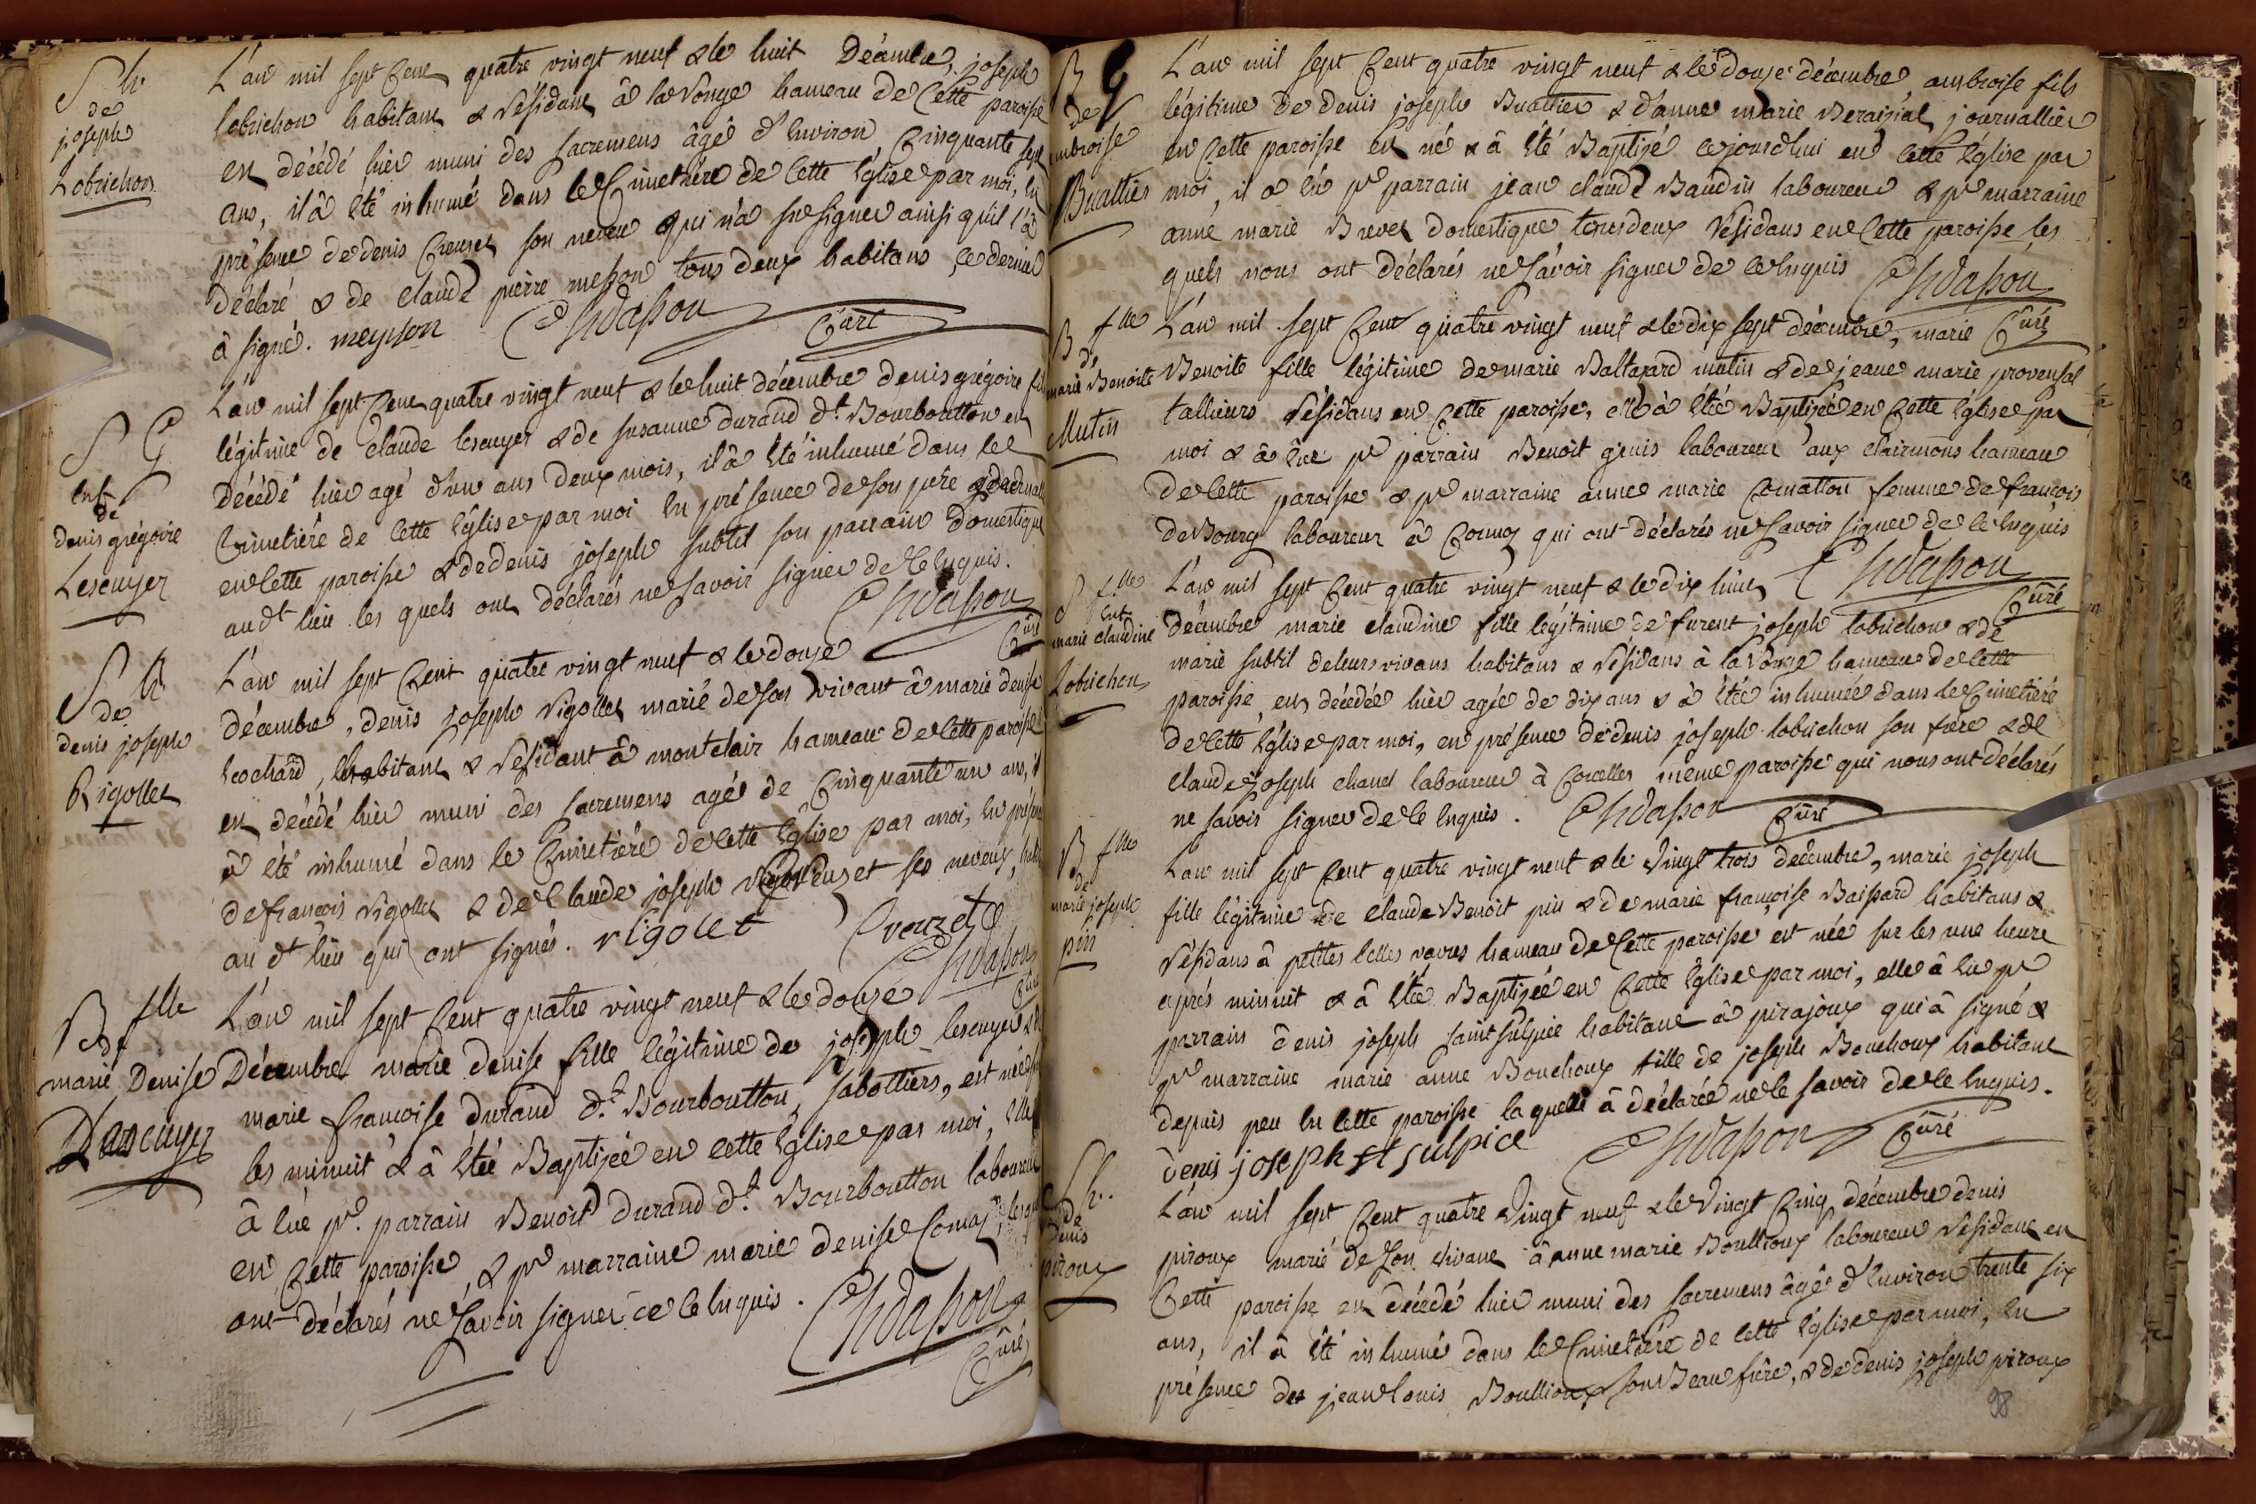 S h
de
joseph
Lobrichon
L'an mil sept Cent quatre vingt neuf & le huit Décembre, joseph
lobrichon habitant & résidant à la vonge hameau de Cette paroisse
est décédé hier muni des sacremens âgé d'Environ Cinquante sept
ans, il â été inhumé dans le Cimetière de Cette Eglise par moi, En
présence de denis Creuzet son neveu qui n'a su signer ainsi qu'il l'à
déclaré & de Claude pierre messon tous deux habitans, ce dernier
â signé. meysson Chdasson
Curé
S G
Enf
de
denis grégoire
Lescuyer
L'an mil sept Cent quatre vingt neuf & le huit décembre denis grégoire fils
légitime de Claude lescuyer & de susanne durand dt. Bourboutton est
décédé hier agé d'un ans deux mois, il â été inhumé dans le
Cimetière de Cette Eglise par moi En présence de son père
en Cette paroisse & de denis joseph subtil son parrain domestique
au dt lieu les quels ont déclarés ne savoir signer de Ce Enquis.
Chdasson
Curé
S h
de
denis joseph
Rigollet
L'an mil sept Cent quatre vingt neuf & le douze
décembre, denis joseph Rigollet marié de son vivant â marie denise
cochard, habitant & résidant â montclair hameau de Cette paroisse
est décédé hier muni des sacremens agé de Cinquante un ans, il
â été inhumé dans le Cimetière de Cette Eglise par moi, En présence
de françois rigollet & de Claude joseph Creuzet ses neveux,
au dt lieu qui ont signés. rigolet Creuzet
Chdasson
Curé
B flle
de
marie Denise
Lescuyer
L'an mil sept Cent quatre vingt neuf & le douze
Décembre marie denise fille légitime de joseph lescuyer & de
marie françoise durand dt. Bourboutton, sabottiers, est née
les minuit & â été Baptizée en cette Eglise par moi, Elle
â Eûe pr. parrain Benoit durand dt. Bourboutton laboureur
en Cette paroisse, & pr marraine marie denise Comas,
ont déclarés ne savoir signer de Ce Enquis.
Chdasson
Curé
B G
de
ambroise
Buattier
L'an mil sept Cent quatre vingt neuf & le douze décembre ambroise fils
légitime de denis joseph Buattier & d'anne marie Beraizial, journallier
en Cette paroisse est né & â été Baptizé ce jourd'hui en Cette Eglise par
moi, il a Eû pr parrain jean claude Baudin laboureur & pr marraine
anne marie Brevet domestique tous deux résidans en Cette paroisse les
quels nous ont déclarés ne savoir signer de ce Enquis
Chdasson
Curé
B flle
de
marie Benoite
Mutin
L'an mil sept Cent quatre vingt neuf & le dix sept décembre, marie
Benoite fille légitime de marie Baltazard mutin & de jeane marie provensal
tallieurs résidans en Cette paroisse, elle à été Baptizée en Cette Eglise par
moi & â Eûe pr parrain Benoit genis laboureur aux clairmons hameau
de Cette paroisse & pr marraine anne marie Convatton femme de françois
deBourg laboureur â Cormoz qui ont déclarés ne savoir signer de Ce Enquis
Chdasson
Curé
S flle
Enf
marie claudine
Lobrichon
L'an mil sept Cent quatre vingt neuf & le dix huit
décembre marie claudine fille légitime de furent joseph lobrichon & de
marie subtil de leurs vivans habitans & résidans à la vonge hameau de Cette
paroisse, est décédée hier agée de dix ans & â été inhumée dans le Cimetière
de Cette Eglise par moi, en présence de denis joseph lobrichon son frère & de
claude joseph chanel laboureur à Corcelles même paroisse qui nous ont déclarés
ne savoir signer de Ce Enquis. Chdasson Curé
B flle
de
marie joseph
pin
L'an mil sept Cent quatre vingt neuf & le vingt trois décembre, marie joseph
fille légitime de claude Benoit pin & de marie françoise Baissard habitans &
résidans à petites belles vavres hameau de Cette paroisse est née sur les une heure
après minuit & â été Baptizée en Cette Eglise par moi, elle â Eue pr
parrain denis joseph saint sulpice habitant â pirajoux qui â signé &
pr marraine marie anne Bouchoux fille de joseph Bouchoux habitant
depuis peu En Cette paroisse la quelle â déclarée ne le savoir de Ce Enquis.
denis joseph st sulpice Chdasson Curé
S h.
de
denis
piroux
L'an mil sept Cent quatre vingt neuf & le vingt Cinq décembre denis
piroux marié de son vivant â anne marie Boullioux laboureur résidant en
Cette paroisse est décédé hier muni des sacremens âgé d'Environ trente six
ans, il â été inhumé dans le Cimetière de Cette Eglise par moi, En
présence de jean louis Boullioux son Beau frère, & de denis joseph piroux
98